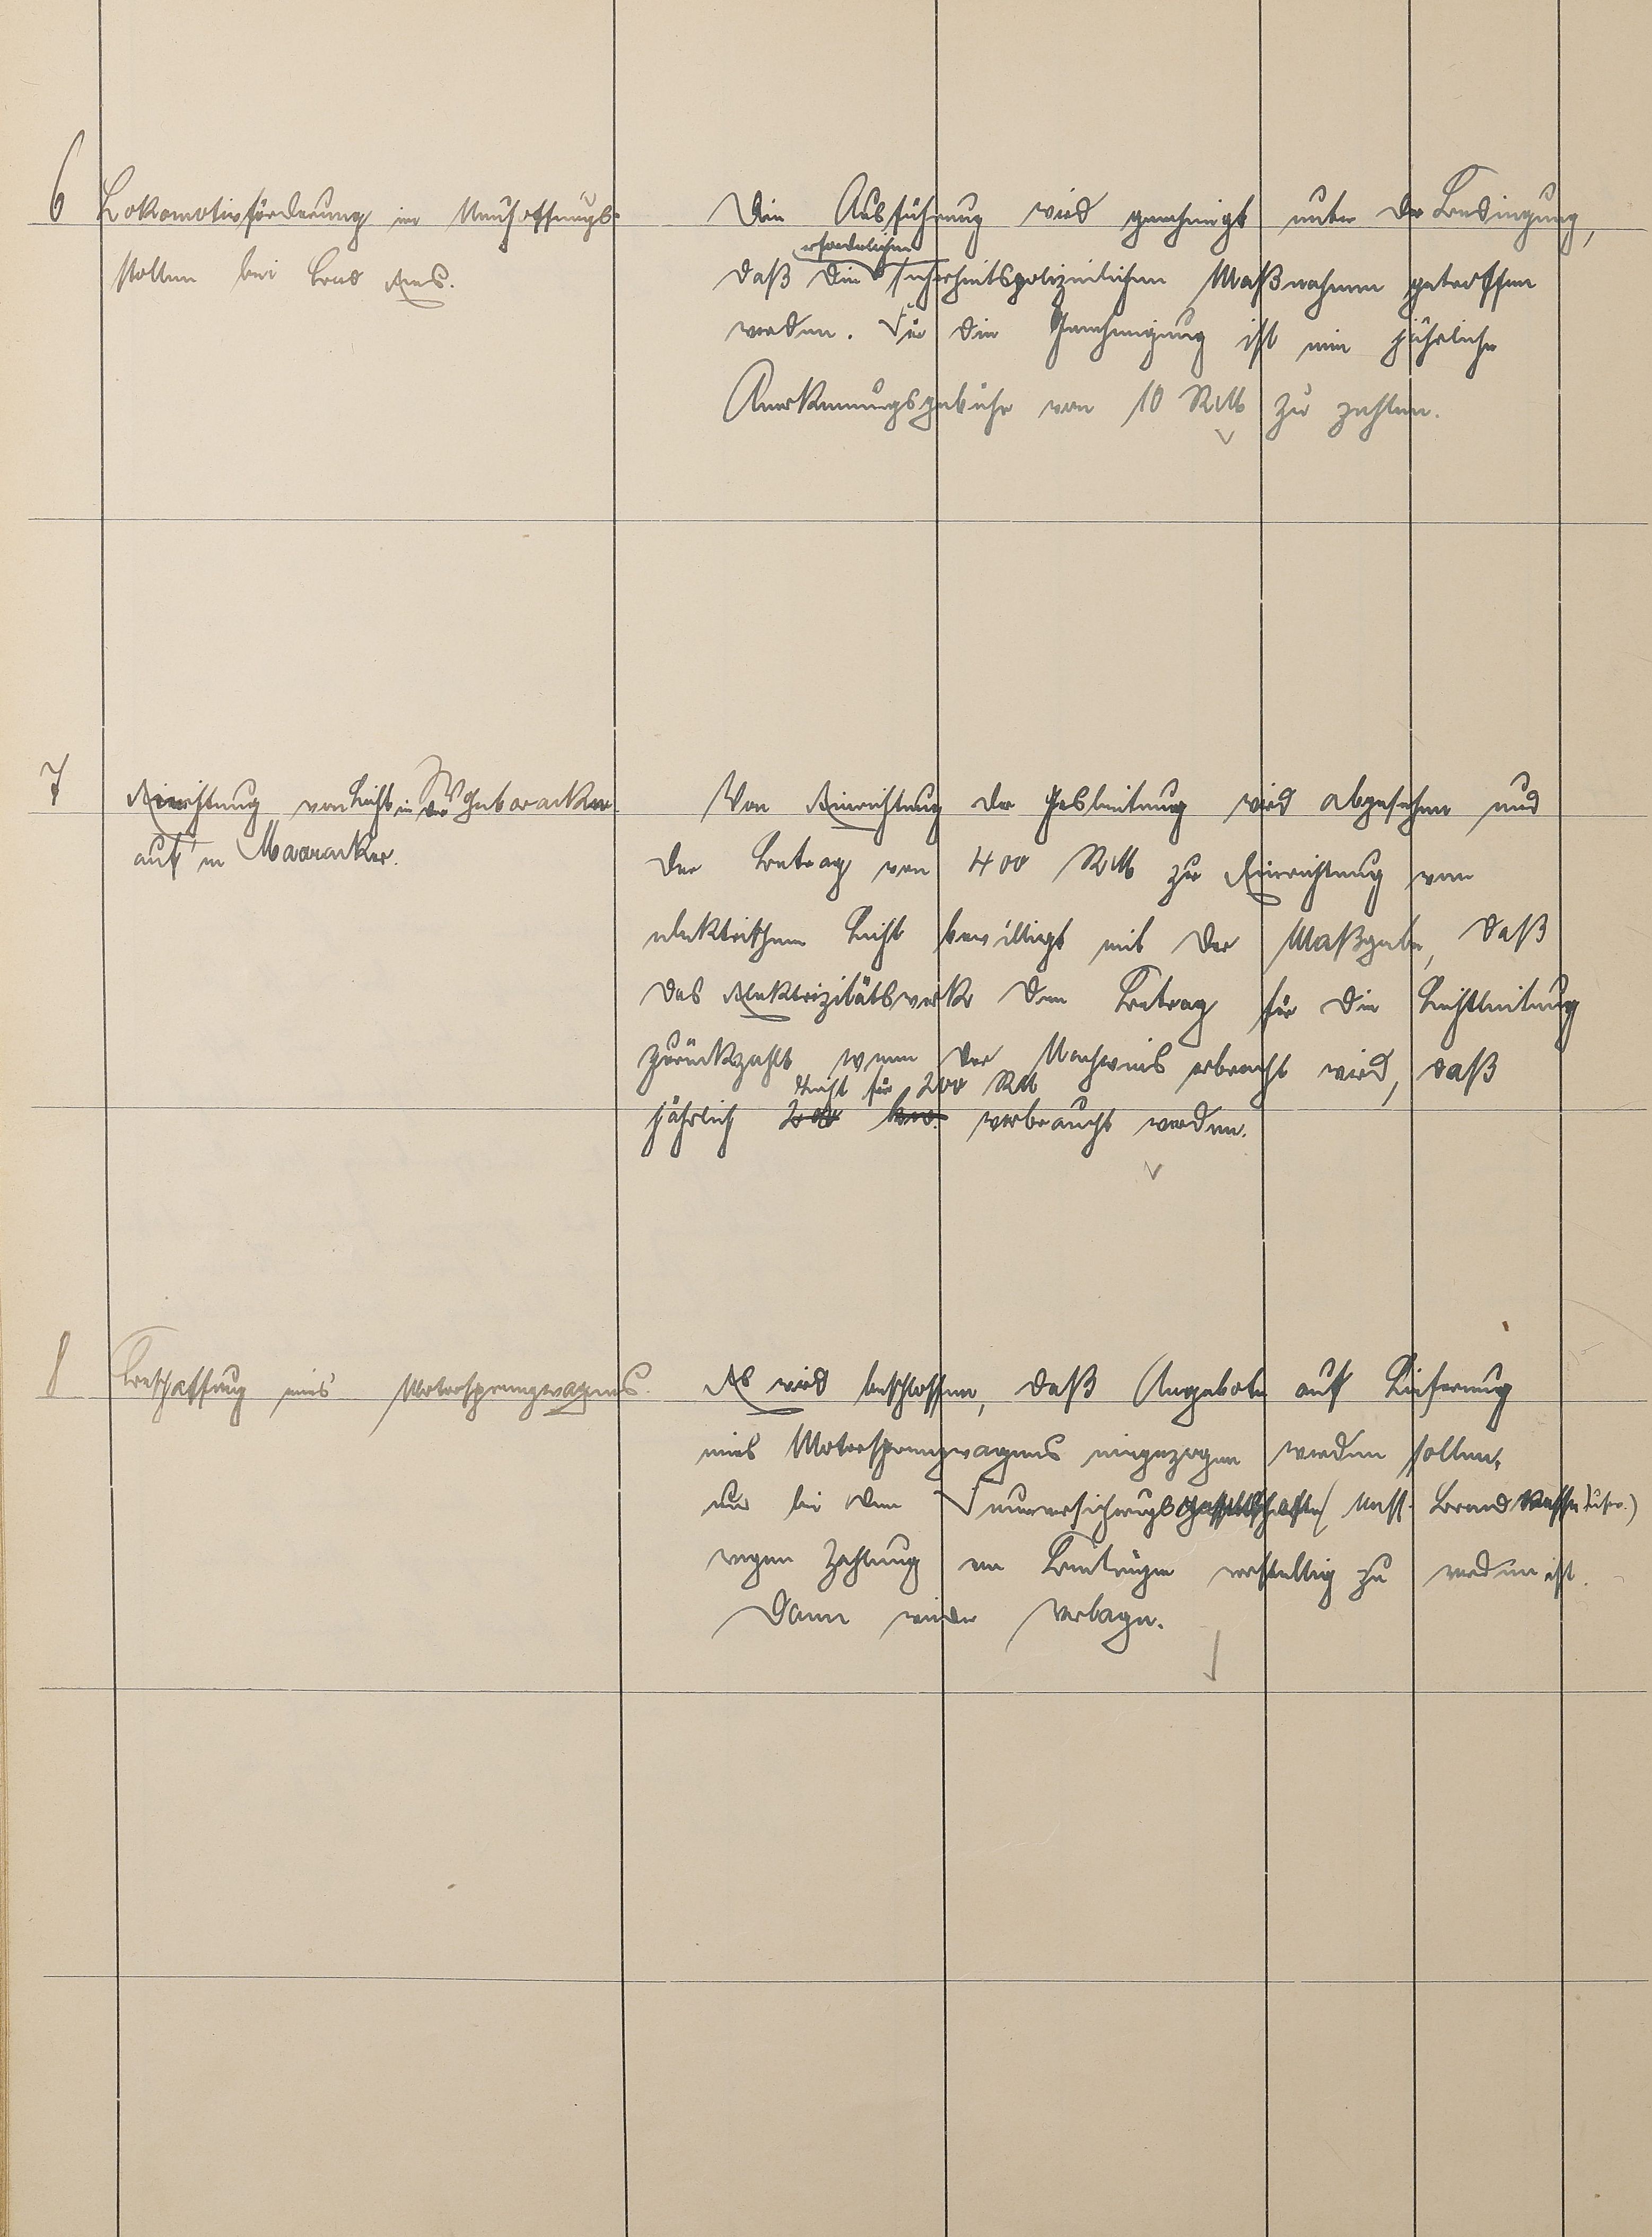 6
Lokomotivförderung im Neuhoffnungs-
stollen bei Bad Ems.
Die Ausführung wird genehmigt unter der Bedingung,
erforderlichen
daß die sicherheitspolizeilichen Maßnahmen getroffen
werden. Für die Genehmigung ist eine jährliche
Anerkennungsgebühr von 10 RM zu zahlen.
7
Einrichtung von Licht in der Wohnbaracke
auf'm
Von Einrichtung der Gasleitung wird abgesehen und
der Betrag von 400 RM zur Einrichtung von
elektrischem Licht bewilligt mit der Maßgabe, daß
das Elektrizitätswerk den Betrag für die Lichtleitung
zurückzahlt wenn der Nachweis erbracht wird, daß
Licht für 200 RM
jährlich 200 kw. verbraucht werden.
8
Beschaffung eines Motorsprengwagens.
Es wird beschlossen, daß Angebote auf Lieferung
eines Motorsprengwagens eingezogen werden sollen,
und bei den Feuerversicherungsgesellschaften (Nass. Brandkasse usw.)
wegen Zahlung von Beiträgen vorstellig zu werden ist.
Dann wieder Vorlage.